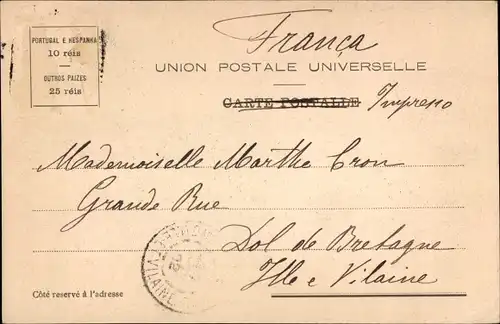 França
PORTUGAL E HESPANHA
10 réis
OUTROS PAIZES
25 réis
UNION POSTALE UNIVERSELLE
CARTE POSTALLE Impresso
Mademoiselle Marthe Cron
Grande Rue
Dol de Bretagne
Ille e Vilaine
Côté reservé à l'adresse